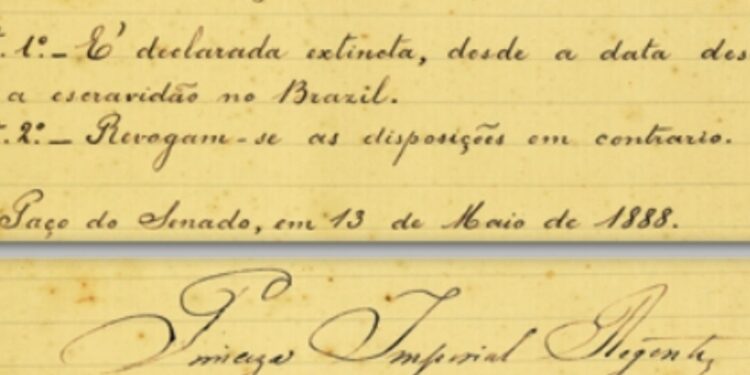 t. 1º._ E' declarada extincta, desde a data des
a escravidão no Brazil.
t. 2º._ Revogam-se as disposições em contrario.
Paço do Senado, em 13 de Maio de 1888.
Princeza Imperial Regente,